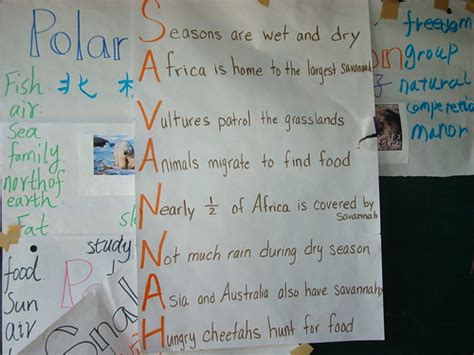 Polar
Fish 北
air
Sea
family
north of
earth.
Fat
study
food.
Sun
air
Seasons are wet and dry
Africa is home to the largest savannah
Vultures patrol the grasslands
Animals migrate to find food
Nearly ½ of Africa is covered by
savannah
Not much rain during dry season
Asia and Australia also have savannahs
Hungry cheetahs hunt for food
freedom
group
natural
manor